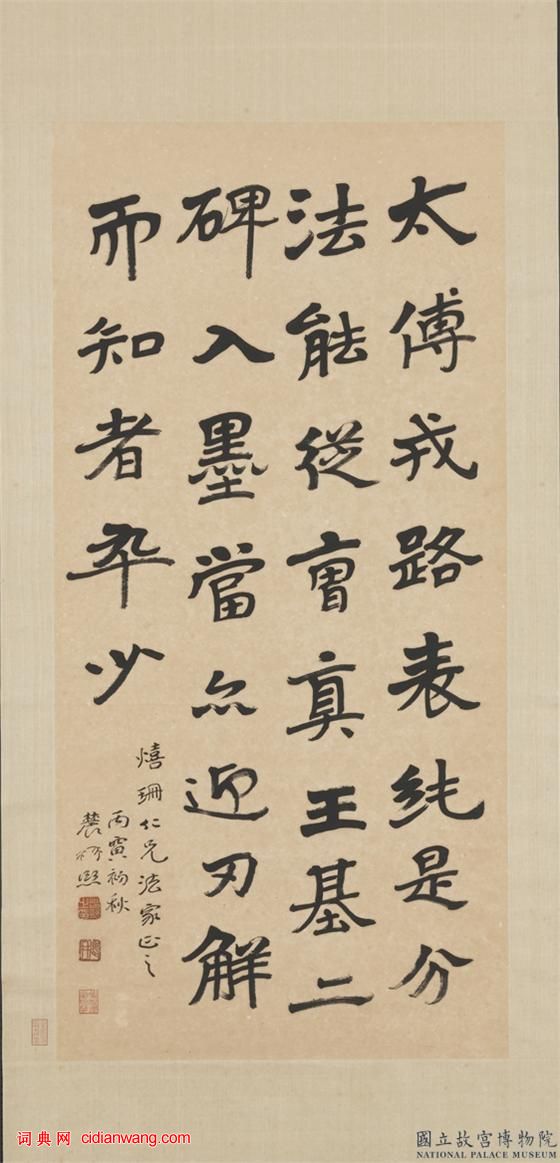 太傅戎路表純是分
法能從曹真王基二
碑入墨當亦迎刃解
而知者卒少
熺珊仁兄法家正之
丙寅初秋
農髯熙
词典网 cidianwang.com
國立故宮博物院
NATIONAL PALACE MUSEUM